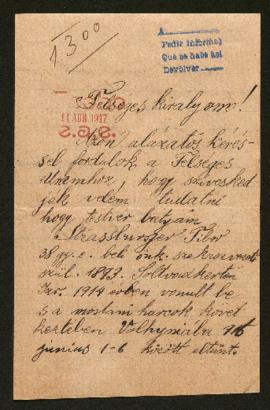 1300
Pedir informes
Que se hace así
Devolver
11 ABR 1917
Felséges királyom!
Azon alázatos kérés-
sel fordulok a Felséges
Uramhoz, hogy szívesked
jék velem tudatni
hogy testvér bátyám
Strassburger
38 gy. e. beli önk.
szül. 1893. Soltvadkertin
1914 évben vonult be
s a mostani harcok követ
keztében Volhyniába 916
junius 1-6 között eltünt.